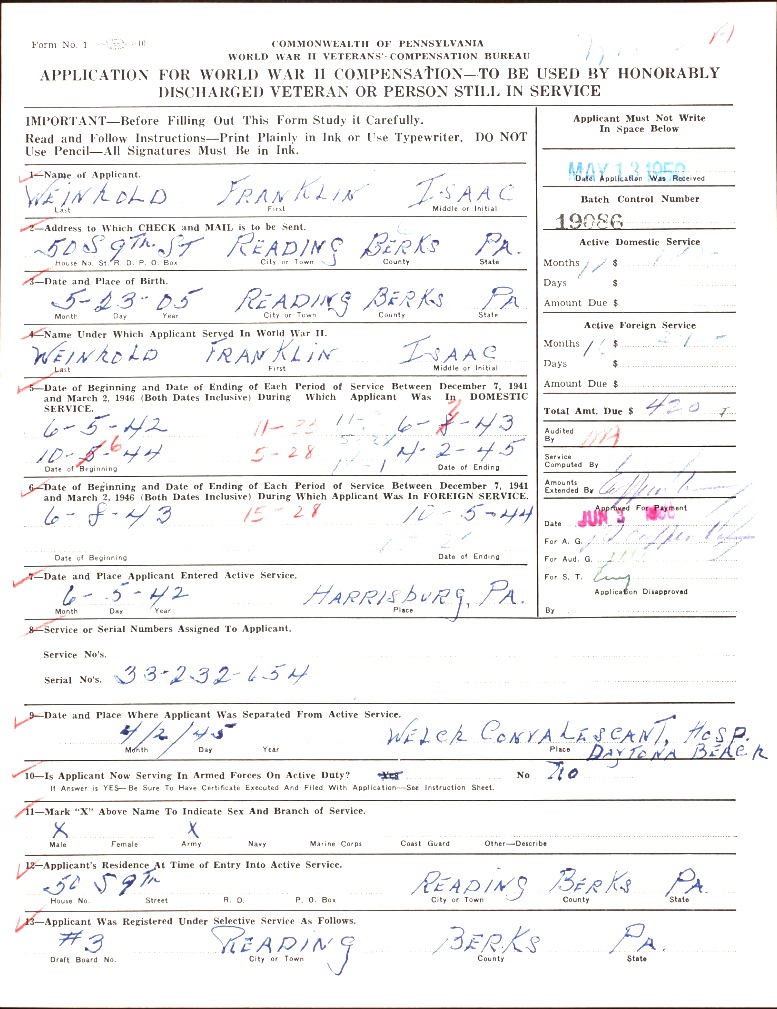 Form No. 1
COMMONWEALTH OF PENNSYLVANIA
WORLD WAR II VETERANS' COMPENSATION BUREAU
APPLICATION FOR WORLD WAR II COMPENSATION—TO BE USED BY HONORABLY
DISCHARGED VETERAN OR PERSON STILL IN SERVICE
IMPORTANT—Before Filling Out This Form Study it Carefully.
Read and Follow Instructions—Print Plainly in Ink or Use Typewriter. DO NOT
Use Pencil—All Signatures Must Be in Ink.
1—Name of Applicant.
WEINHOLD FRANKLIN ISAAC
Last First Middle or Initial
2—Address to Which CHECK and MAIL is to be Sent.
50 S 9TH ST READING BERKS PA.
House No. St. R. D. P. O. Box City or Town County State
3—Date and Place of Birth.
5-23-05 READING BERKS PA
Month Day Year City or Town County State
4—Name Under Which Applicant Served In World War II.
WEINHOLD FRANKLIN ISAAC
Last First Middle or Initial
5—Date of Beginning and Date of Ending of Each Period of Service Between December 7, 1941
and March 2, 1946 (Both Dates Inclusive) During Which Applicant Was In DOMESTIC
SERVICE.
6-5-42 6-8-43
10-6-44 5-28 4-2-45
Date of Beginning Date of Ending
6—Date of Beginning and Date of Ending of Each Period of Service Between December 7, 1941
and March 2, 1946 (Both Dates Inclusive) During Which Applicant Was In FOREIGN SERVICE.
6-8-43 15-28 10-5-44
Date of Beginning Date of Ending
7—Date and Place Applicant Entered Active Service.
6-5-42 HARRISBURG, PA.
Month Day Year Place
8—Service or Serial Numbers Assigned To Applicant.
Service No's.
Serial No's. 33-232-654
9—Date and Place Where Applicant Was Separated From Active Service.
4/2/45 WELCH CONVALESCANT, HOSP.
Month Day Year Place DAYTONA BEACH
10—Is Applicant Now Serving In Armed Forces On Active Duty? Yes No No
If Answer is YES—Be Sure To Have Certificate Executed And Filed With Application—See Instruction Sheet.
11—Mark "X" Above Name To Indicate Sex And Branch of Service.
X X
Male Female Army Navy Marine Corps Coast Guard Other—Describe
12—Applicant's Residence At Time of Entry Into Active Service.
50 S 9TH READING BERKS PA.
House No. Street R. D. P. O. Box City or Town County State
13—Applicant Was Registered Under Selective Service As Follows.
#3 READING BERKS PA.
Draft Board No. City or Town County State
Applicant Must Not Write
In Space Below
MAY 13 1950
Date Application Was Received
Batch Control Number
19086
Active Domestic Service
Months $
Days $
Amount Due $
Active Foreign Service
Months $
Days $
Amount Due $
Total Amt. Due $ 420
Audited
By
Service
Computed By
Amounts
Extended By
Approved For Payment
Date JUN 3
For A. G.
For Aud. G.
For S. T.
Application Disapproved
By